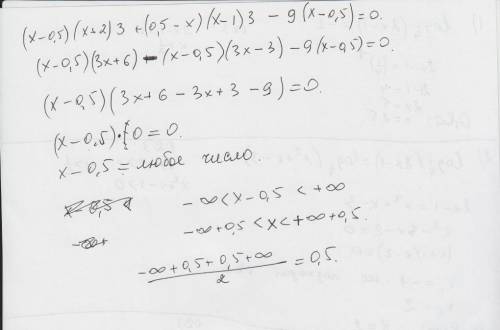 (x-0,5)(x+2)3 + (0,5-x)(x-1)3 - 9(x-0,5)=0.
(x-0,5)(3x+6) - (x-0,5)(3x-3) - 9(x-0,5)=0.
(x-0,5)(3x+6-3x+3-9)=0.
(x-0,5)·{0=0.
x-0,5 = любое число.
-∞<x-0,5<+∞
-∞+0,5<x<+∞+0,5.
(-∞+0,5+0,5+∞)/2 = 0,5.